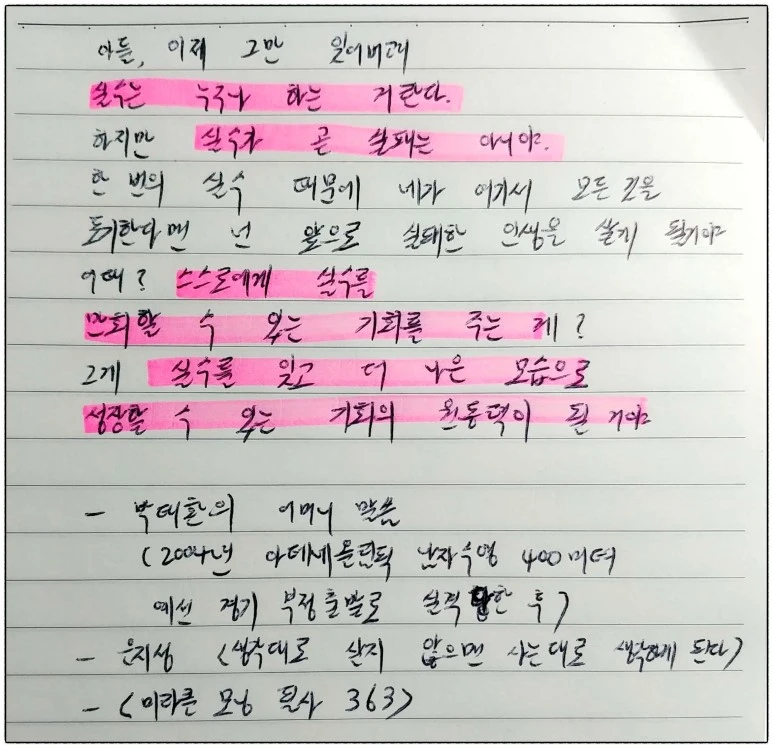 아들, 이제 그만 잊어버려
실수는 누구나 하는 거란다.
하지만 실수가 곧 실패는 아니야.
한 번의 실수 때문에 네가 여기서 모든 것을
포기한다면 넌 앞으로 실패한 인생을 살게 될거야
어때? 스스로에게 실수를
만회할 수 있는 기회를 주는 게?
그게 실수를 잊고 더 나은 모습으로
성장할 수 있는 기회의 원동력이 될 거야
- 박태환의 어머니 말씀
(2004년 아테네올림픽 남자수영 400미터
예선 경기 부정출발로 실격 당한 후)
- 은지성 <생각대로 살지 않으면 사는대로 생각하게 된다>
- <미라클 모닝 필사 363>